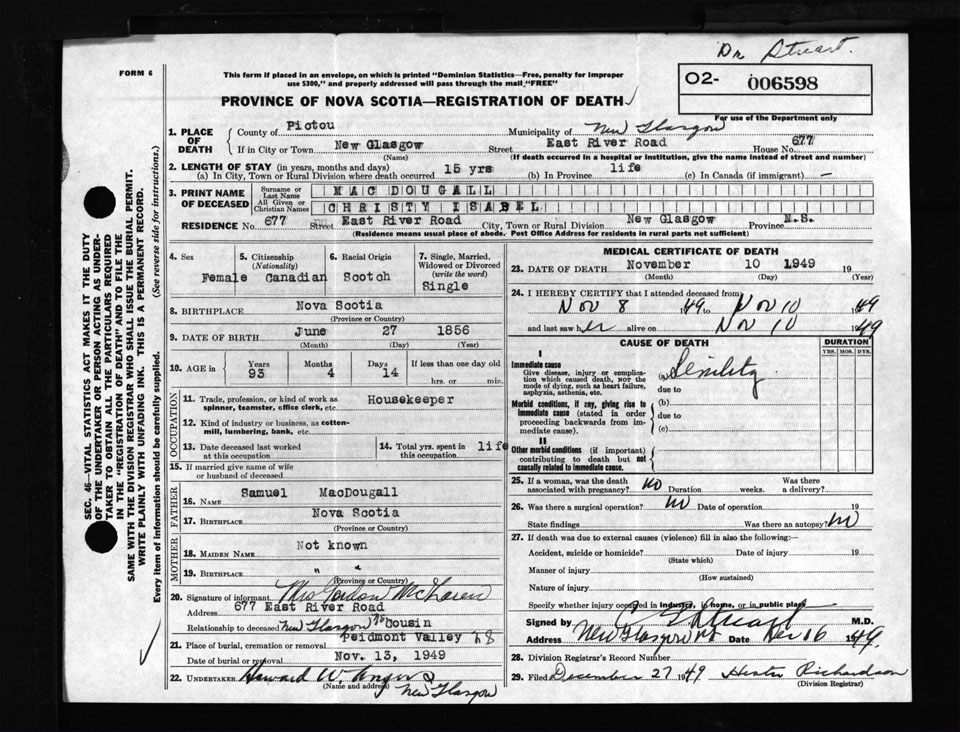 Dr Stuart.
FORM 6
This form if placed in an envelope, on which is printed "Dominion Statistics—Free, penalty for improper
use $300," and properly addressed will pass through the mail "FREE"
O2- 006598
PROVINCE OF NOVA SCOTIA—REGISTRATION OF DEATH
For use of the Department only
1. PLACE OF DEATH
County of Pictou Municipality of New Glasgow
If in City or Town New Glasgow Street East River Road House No. 677
(Name) (If death occurred in a hospital or institution, give the name instead of street and number)
2. LENGTH OF STAY (in years, months and days)
(a) In City, Town or Rural Division where death occurred 15 yrs (b) In Province life (c) In Canada (if immigrant) —
3. PRINT NAME OF DECEASED
Surname or Last Name MAC DOUGALL
All Given or Christian Names CHRISTY ISABEL
RESIDENCE No. 677 Street East River Road City, Town or Rural Division New Glasgow Province N.S.
(Residence means usual place of abode. Post Office Address for residents in rural parts not sufficient)
4. Sex Female
5. Citizenship (Nationality) Canadian
6. Racial Origin Scotch
7. Single, Married, Widowed or Divorced (write the word) Single
8. BIRTHPLACE Nova Scotia
(Province or Country)
9. DATE OF BIRTH June 27 1856
(Month) (Day) (Year)
10. AGE in Years 93 Months 4 Days 14 If less than one day old
hrs. or min.
OCCUPATION
11. Trade, profession, or kind of work as spinner, teamster, office clerk, etc. Housekeeper
12. Kind of industry or business, as cotton-mill, lumbering, bank, etc.
13. Date deceased last worked at this occupation
14. Total yrs. spent in this occupation life
15. If married give name of wife or husband of deceased
FATHER
16. NAME Samuel MacDougall
17. BIRTHPLACE Nova Scotia
(Province or Country)
MOTHER
18. MAIDEN NAME Not known
19. BIRTHPLACE " "
(Province or Country)
20. Signature of informant Mrs Gordon McLaren
Address 677 East River Road
Relationship to deceased New Glasgow NS Cousin
21. Place of burial, cremation or removal Peidmont Valley
Date of burial or removal Nov. 13, 1949
22. UNDERTAKER Howard W.
(Name and address) New Glasgow
MEDICAL CERTIFICATE OF DEATH
23. DATE OF DEATH November 10 1949 19
(Month) (Day) (Year)
24. I HEREBY CERTIFY that I attended deceased from
Nov 8 1949 to Nov 10 1949
and last saw her alive on Nov 10 1949
CAUSE OF DEATH DURATION
YRS. MOS. DYS.
I
Immediate cause
Give disease, injury or complication which caused death, NOT the mode of dying, such as heart failure, asphyxia, asthenia, etc.
(a) Senility
due to
Morbid conditions, if any, giving rise to immediate cause (stated in order proceeding backwards from immediate cause).
(b)
due to
(c)
II
Other morbid conditions (if important) contributing to death but not causally related to immediate cause.
25. If a woman, was the death associated with pregnancy? no Duration weeks. Was there a delivery?
26. Was there a surgical operation? no Date of operation 19
State findings Was there an autopsy? no
27. If death was due to external causes (violence) fill in also the following:—
Accident, suicide or homicide? Date of injury 19
(State which)
Manner of injury
(How sustained)
Nature of injury
Specify whether injury occurred in industry, in home, or in public place
Signed by Stuart M.D.
Address New Glasgow NS Date Dec 16 1949
28. Division Registrar's Record Number
29. Filed December 27 1949 Hester Richardson
(Division Registrar)
SEC. 46—VITAL STATISTICS ACT MAKES IT THE DUTY
OF THE UNDERTAKER OR PERSON ACTING AS UNDER-
TAKER TO OBTAIN ALL THE PARTICULARS REQUIRED
IN THE "REGISTRATION OF DEATH" AND TO FILE THE
SAME WITH THE DIVISION REGISTRAR WHO SHALL ISSUE THE BURIAL PERMIT.
WRITE PLAINLY WITH UNFADING INK. THIS IS A PERMANENT RECORD.
Every item of information should be carefully supplied. (See reverse side for instructions.)